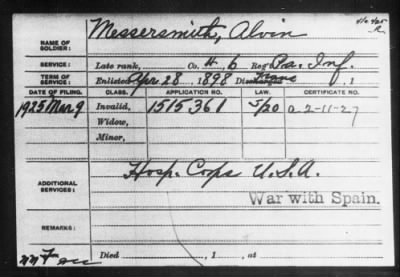 NAME OF SOLDIER: Messersmith, Alvin
SERVICE: Late rank, Co. H, 6 Reg Pa. Inf.
TERM OF SERVICE: Enlisted Apr 28, 1898 Discharged, 1
DATE OF FILING. CLASS. APPLICATION NO. LAW. CERTIFICATE NO.
1925 Mar 9 Invalid, 1515361 5/20 a-2-11-27
Widow,
Minor,
ADDITIONAL SERVICES: Hosp. Corps U.S.A.
War with Spain.
REMARKS:
Died , 1 , at